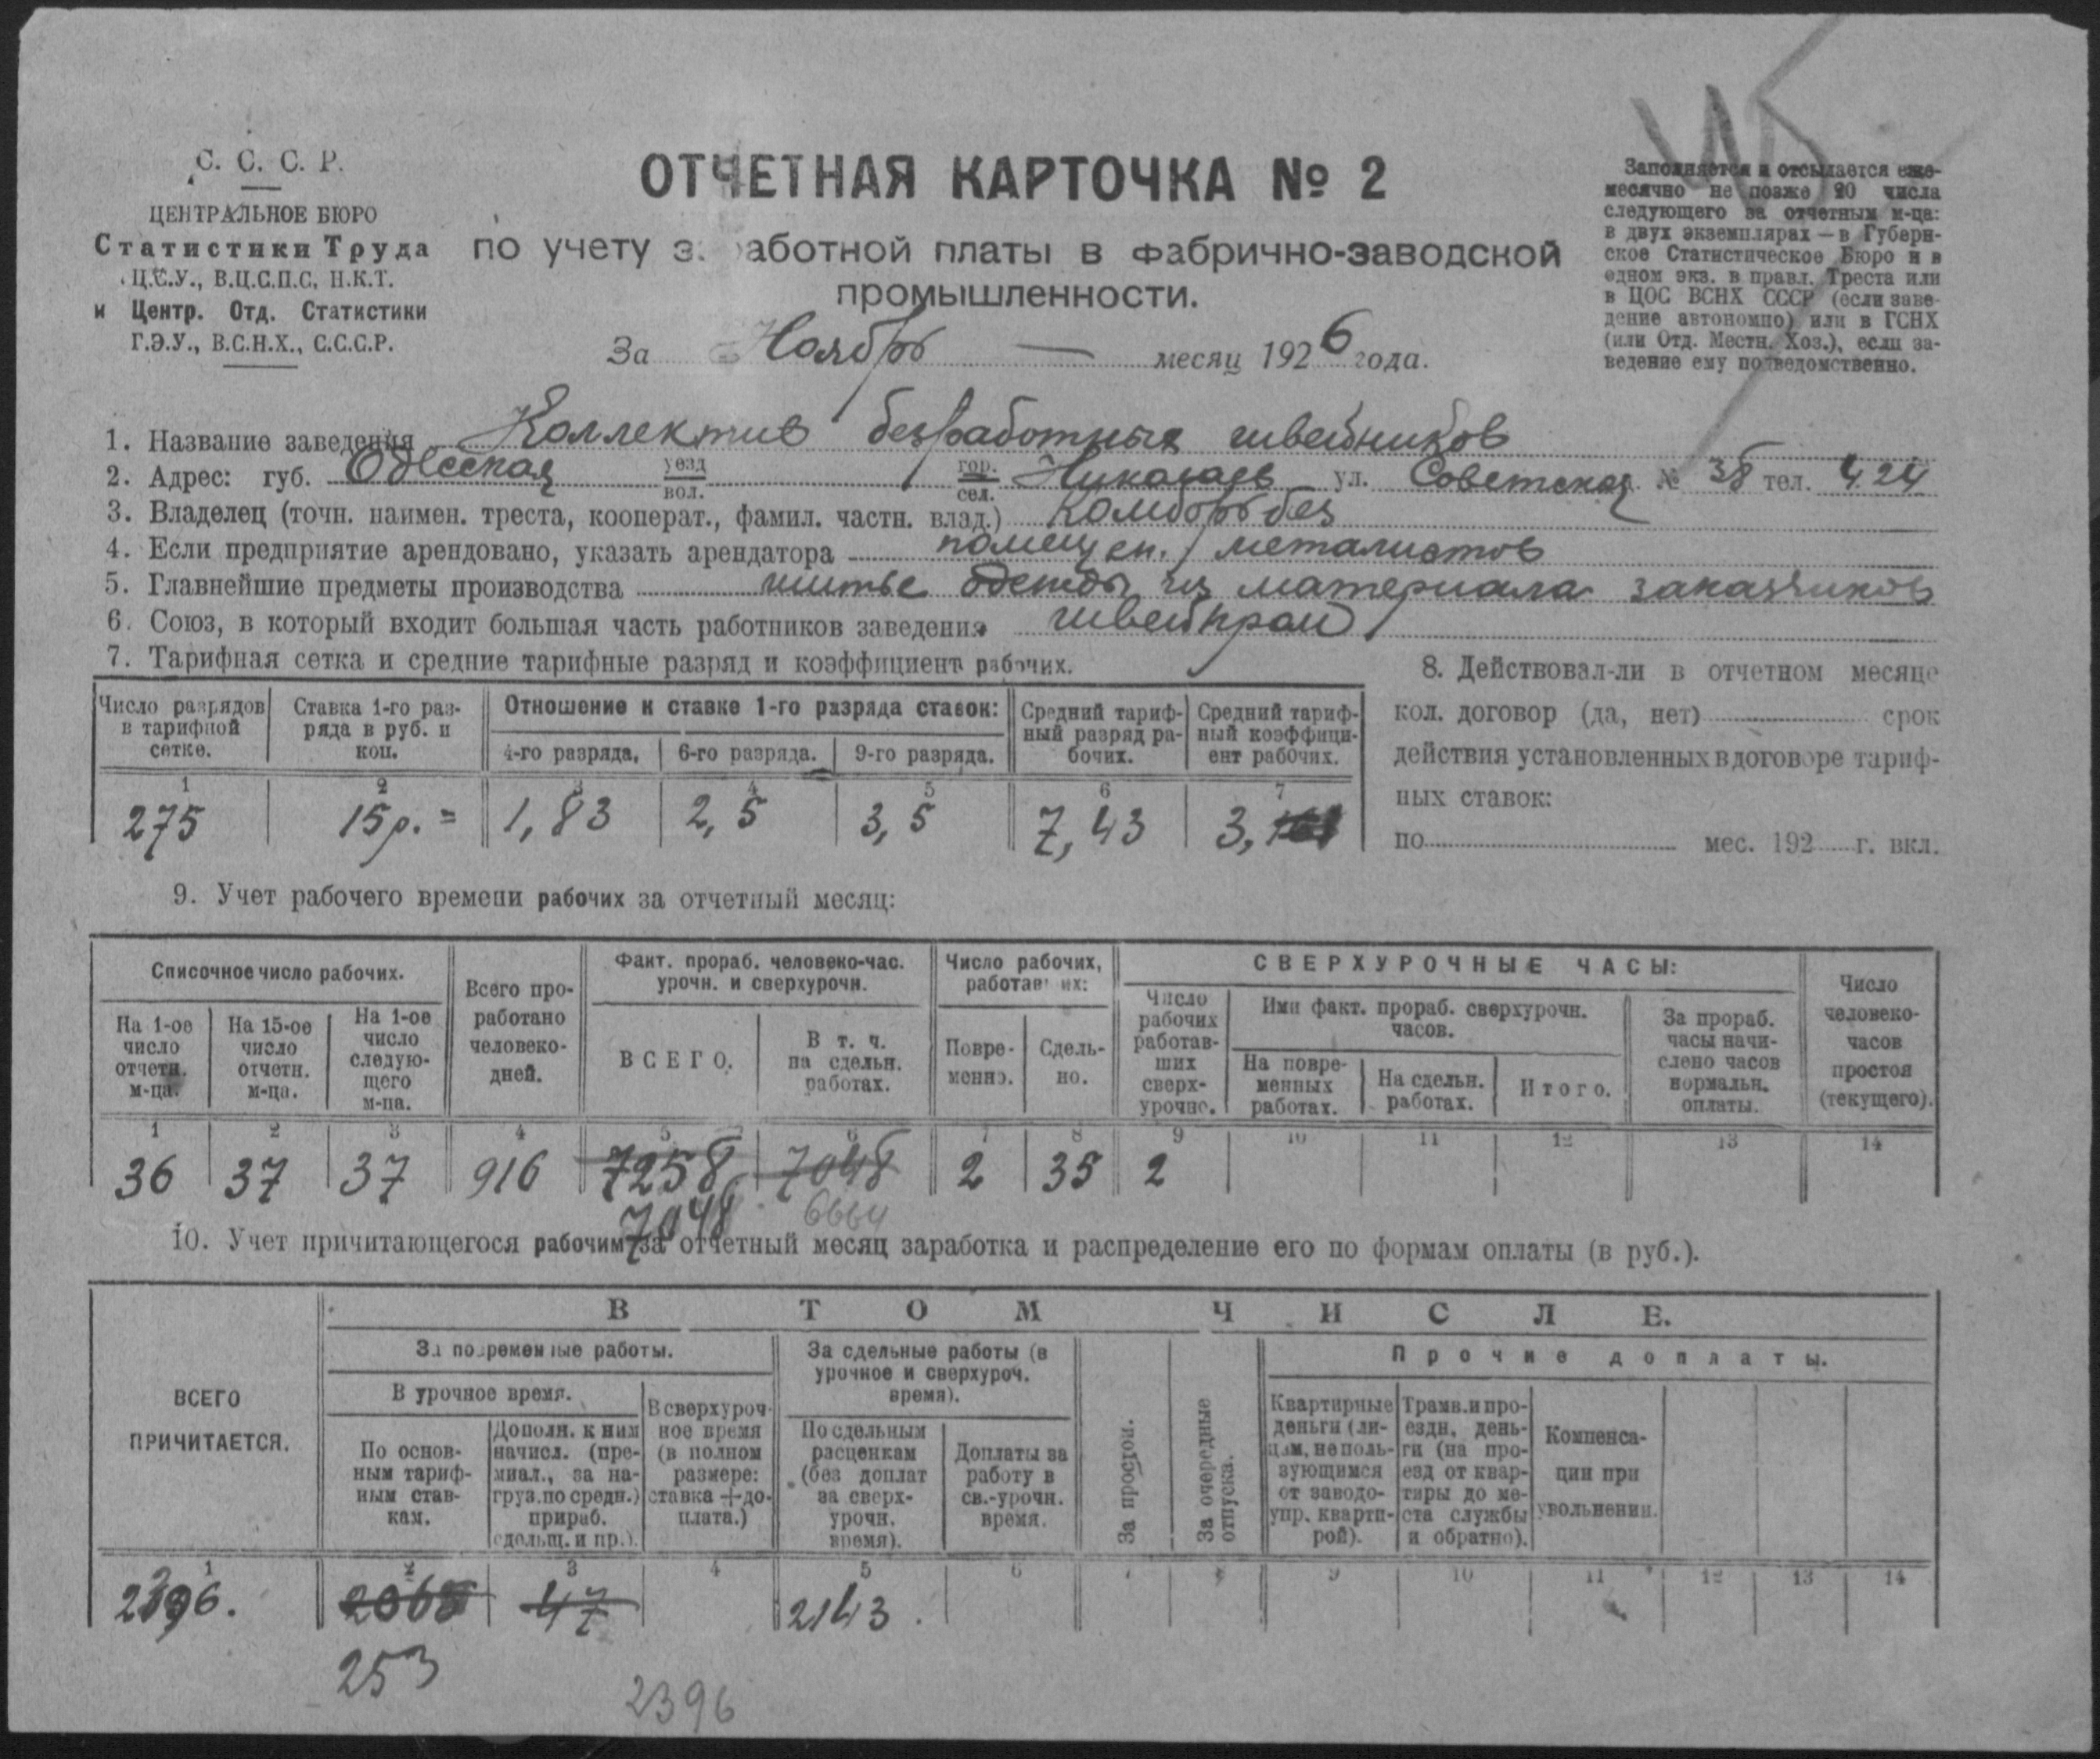 С. С. С. Р.
ЦЕНТРАЛЬНОЕ БЮРО
Статистики Труда
Ц.С.У., В.Ц.С.П.С, Н.К.Т.
и Центр. Отд. Статистики
Г.Э.У., В.С.Н.Х., С.С.С.Р.
ОТЧЕТНАЯ КАРТОЧКА № 2
по учету заработной платы в фабрично-заводской
промышленности.
За Ноябрь — месяц 1926 года.
Заполняется и отсылается еже-
месячно не позже 20 числа
следующего за отчетным м-ца:
в двух экземплярах — в Губерн-
ское Статистическое Бюро и в
одном экз. в правл. Треста или
в ЦОС ВСНХ СССР (если заве-
дение автономно) или в ГСНХ
(или Отд. Местн. Хоз.), если за-
ведение ему подведомственно.
1. Название заведения Коллектив безработных швейников
2. Адрес: губ. Одесская уезд вол. гор. сел. Николаев ул. Советская № 38 тел. 4 24
3. Владелец (точн. наимен. треста, кооперат., фамил. частн. влад.) Комборбез
4. Если предприятие арендовано, указать арендатора помещен. металистов
5. Главнейшие предметы производства шитье одежды из материала заказчиков
6. Союз, в который входит большая часть работников заведения швейпром
7. Тарифная сетка и средние тарифные разряд и коэффициент рабочих.
Число разрядов в тарифной сетке.
Ставка 1-го раз-ряда в руб. и коп.
Отношение к ставке 1-го разряда ставок:
4-го разряда, 6-го разряда. 9-го разряда.
Средний тариф-ный разряд ра-бочих.
Средний тариф-ный коэффици-ент рабочих.
1 2 3 4 5 6 7
275 15р. = 1,83 2,5 3,5 7,43 3,
8. Действовал-ли в отчетном месяце
кол. договор (да, нет) срок
действия установленных в договоре тариф-
ных ставок:
по мес. 192 г. вкл.
9. Учет рабочего времени рабочих за отчетный месяц:
Списочное число рабочих.
На 1-ое число отчетн. м-ца.
На 15-ое число отчетн. м-ца.
На 1-ое число следую-щего м-ца.
Всего про-работано человеко-дней.
Факт. прораб. человеко-час. урочн. и сверхурочн.
ВСЕГО.
В т. ч. на сдельн. работах.
Число рабочих, работавших:
Повре-менно.
Сдель-но.
СВЕРХУРОЧНЫЕ ЧАСЫ:
Число рабочих работав-ших сверх-урочно.
Ими факт. прораб. сверхурочн. часов.
На повре-менных работах.
На сдельн. работах.
Итого.
За прораб. часы начи-слено часов нормальн. оплаты.
Число человеко-часов простоя (текущего).
1 2 3 4 5 6 7 8 9 10 11 12 13 14
36 37 37 916 7258 7048 2 35 2
7048 6664
10. Учет причитающегося рабочим за отчетный месяц заработка и распределение его по формам оплаты (в руб.).
ВСЕГО ПРИЧИТАЕТСЯ.
В ТОМ ЧИСЛЕ.
За повременные работы.
В урочное время.
По основ-ным тариф-ным став-кам.
Дополн. к ним начисл. (пре-миал., за на-груз. по средн.) прираб. сдельщ. и пр.).
В сверхуроч-ное время (в полном размере: ставка + до-плата.)
За сдельные работы (в урочное и сверхуроч. время).
По сдельным расценкам (без доплат за сверх-урочн. время).
Доплаты за работу в св.-урочн. время.
За простои.
За очередные отпуска.
Прочие доплаты.
Квартирные деньги (ли-цам, не поль-зующимся от заводо-упр. кварти-рой).
Трамв. и про-ездн. день-ги (на про-езд от квар-тиры до ме-ста службы и обратно).
Компенса-ции при увольнении.
1 2 3 4 5 6 9 10 11 12 13 14
2396. 2068 47 2143.
253
2396